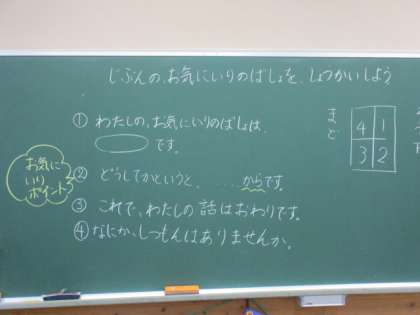 じぶんの、お気にいりのばしょを、しょうかいしよう
① わたしの、お気にいりのばしょは、
です。
② どうしてかというと、……からです。
③ これで、わたしの話はおわりです。
④ なにか、しつもんはありませんか。
お気に
いり
ポイント
まど
4 1
3 2